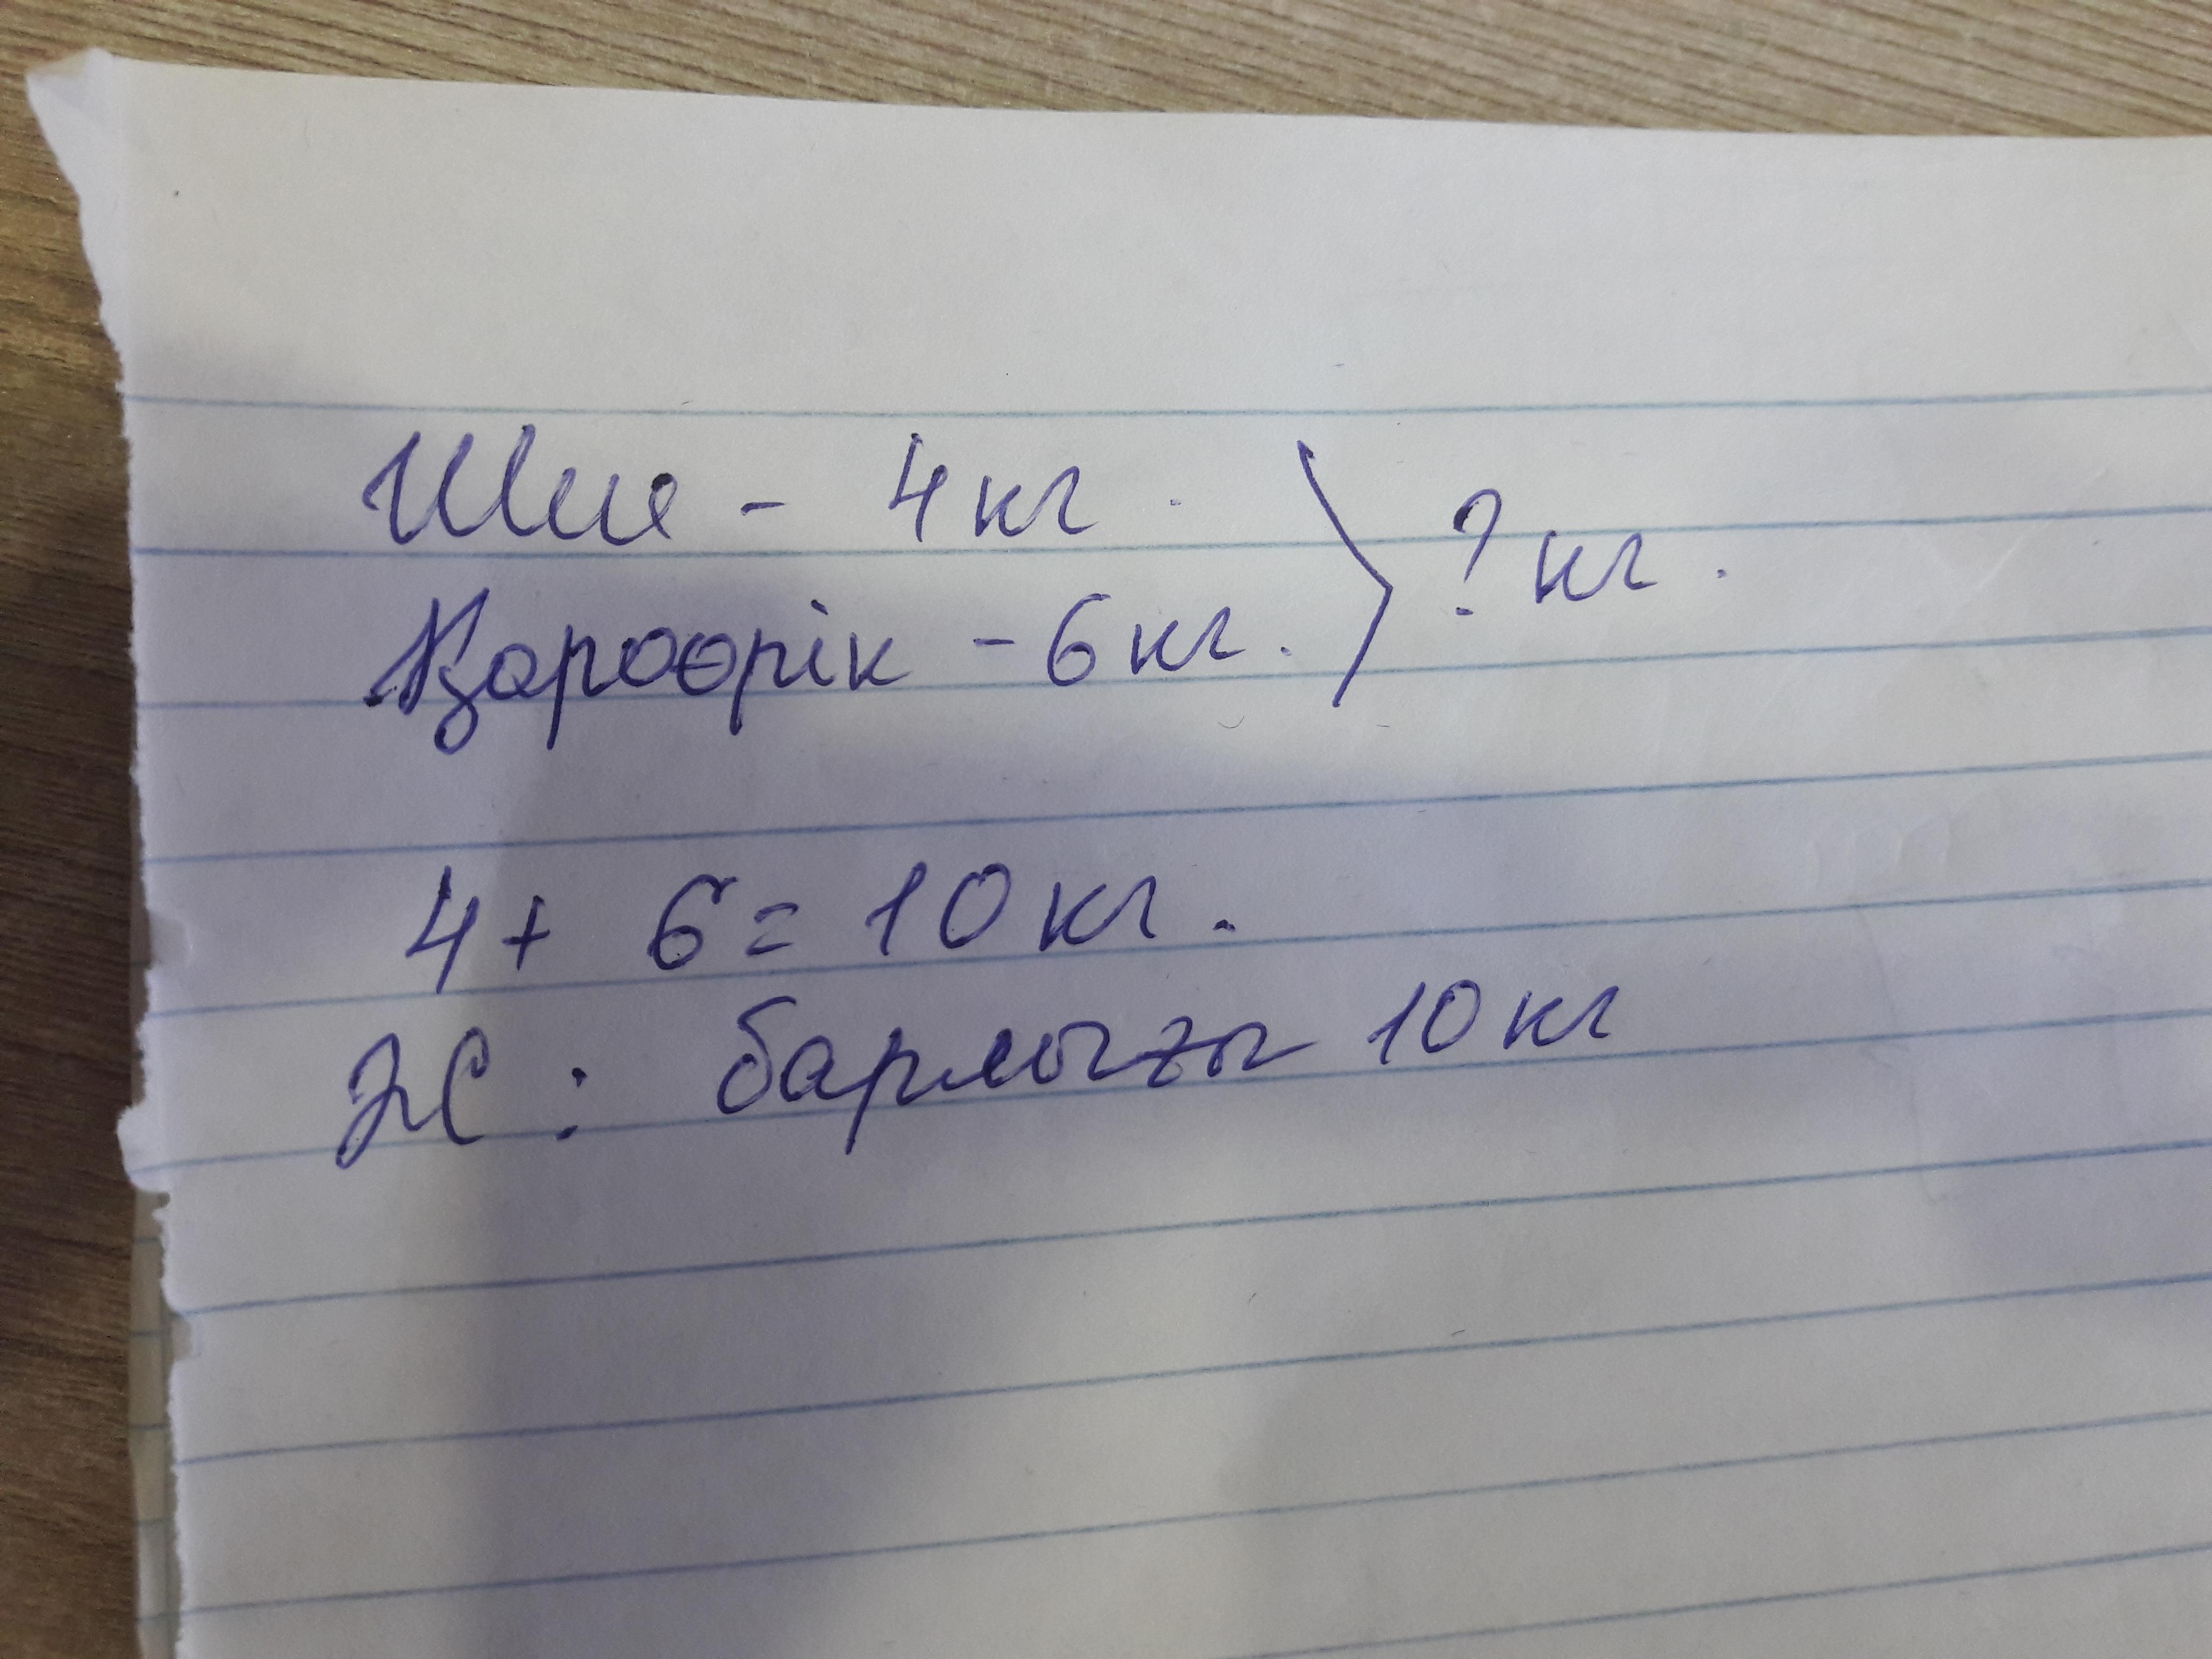 Шие - 4 кг.
Қараөрік - 6 кг. ? кг.
4 + 6 = 10 кг.
Ж: барлығы 10 кг